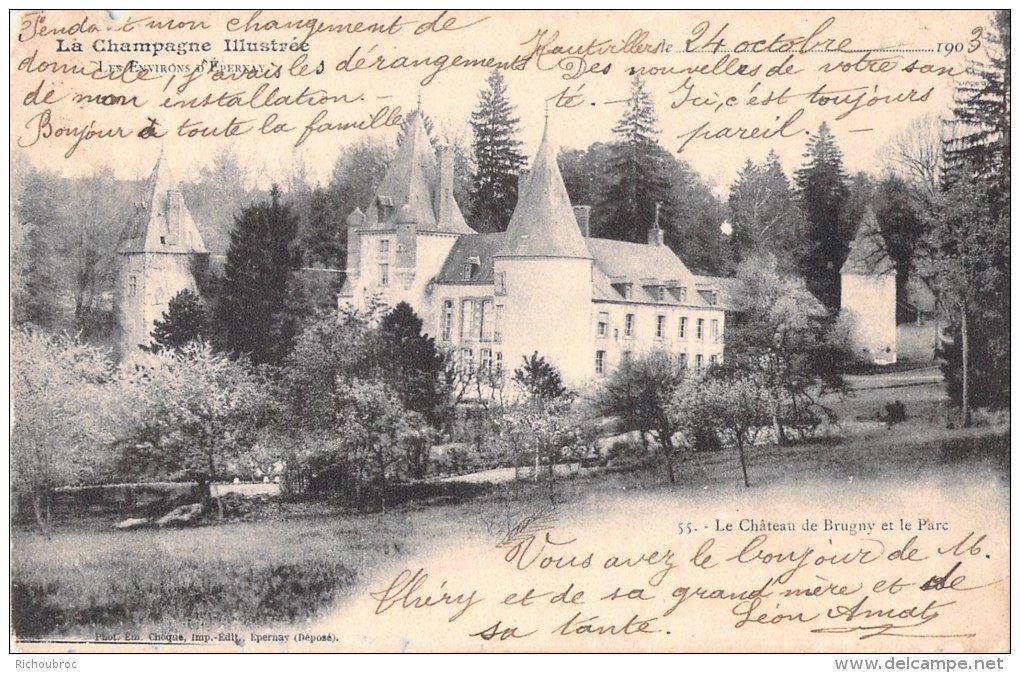 Penda-t mon changement de
La Champagne Illustrée
domicile, j'avais les dérangements
Les Environs d'Épernay
de mon installation. -
Bonjour à toute la famille
Hautvillers le 24 octobre 1903
Des nouvelles de votre san-
té. - Ici, c'est toujours
pareil. -
55. - Le Château de Brugny et le Parc
Vous avez le bonjour de M.
Chéry et de sa grand mère et de
sa tante.
Léon Amat
Phot. Em. Choque, Imp.-Edit., Épernay (Déposé).
Richoubroc
http://www.delcampe.net